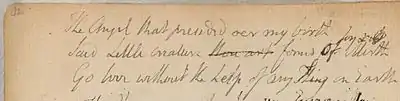 32
The Angel that presided oer my birth
Said Little creature thou art formd of Joy & Mirth
Go love without the help of any Thing on Earth